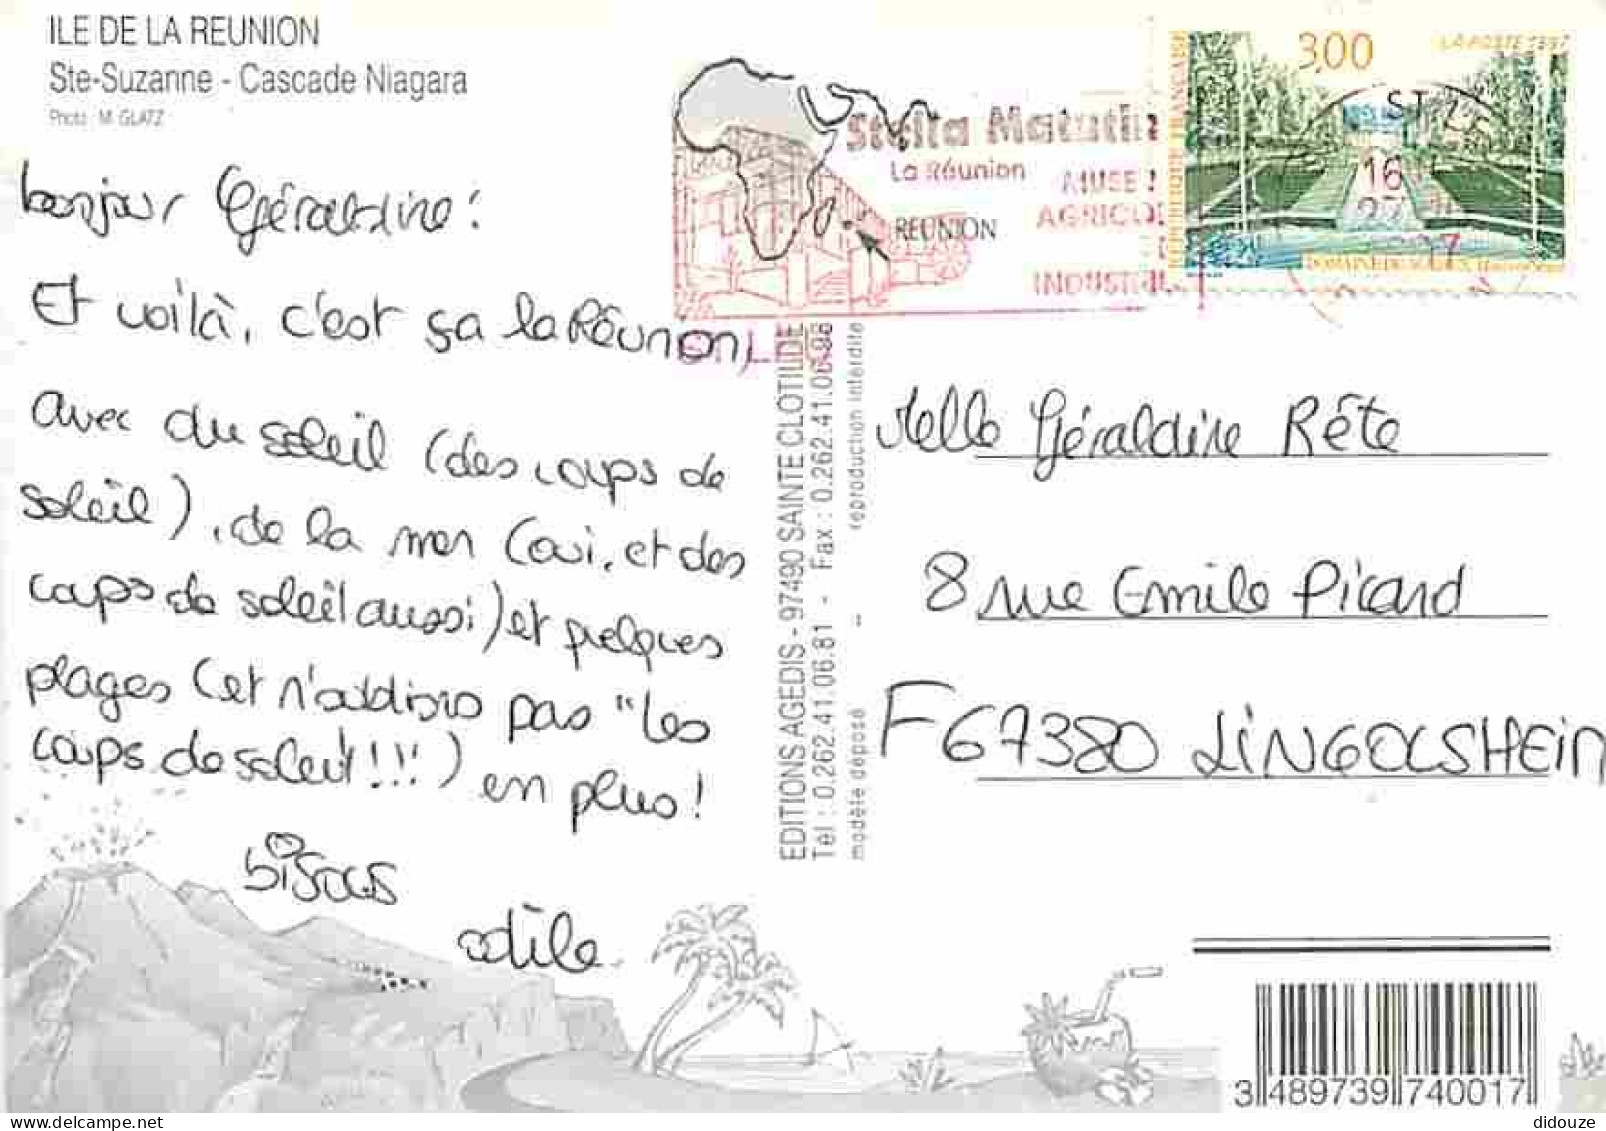 ILE DE LA REUNION
Ste-Suzanne - Cascade Niagara
Photo : M. GLATZ
bonjour Géraldine !
Et voilà, c'est ça la Réunion,
avec du soleil (des coups de
soleil), de la mer (oui, et des
coups de soleil aussi) et quelques
plages (et n'oublions pas "les
coups de soleil!!!) en plus!
bisous
odile.
Stella Matutin
La Réunion
MUSE
AGRICOL
INDUSTRI
REUNION
3,00
LA POSTE 1997
REPUBLIQUE FRANÇAISE
ST L
16
97
EDITIONS AGEDIS - 97490 SAINTE CLOTILDE
Tél : 0.262.41.06.81 - Fax : 0.262.41.06.98
modèle déposé -- reproduction interdite
Melle Géraldine Rête
8 rue Emile Picard
F 67380 LINGOLSHEIM
3 489739 740017
didouze